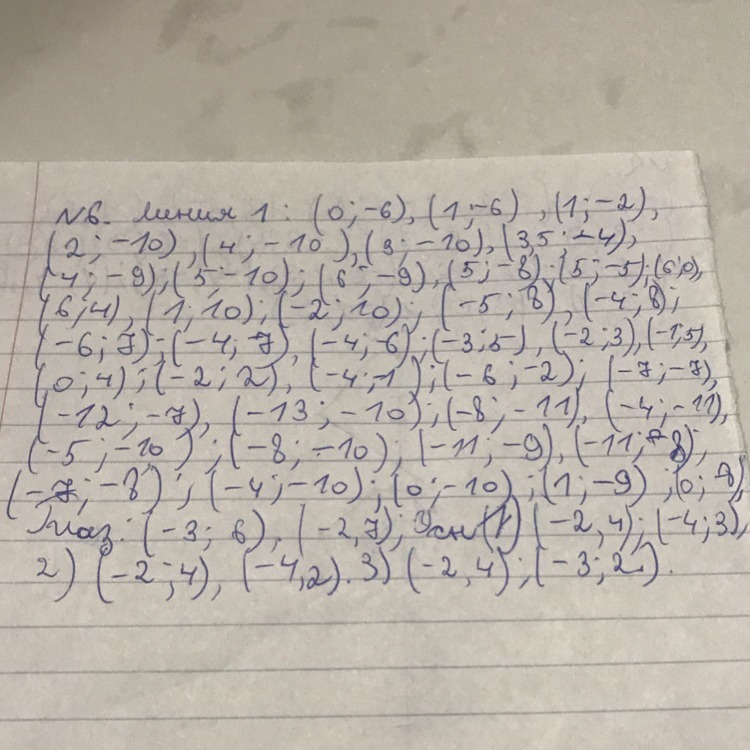 №6. линия 1: (0;-6), (1;-6), (1;-2),
(2;-10), (4;-10), (3;-10), (3,5;-4),
(4;-9); (5;-10); (6;-9), (5;-8); (5;-5); (6;0),
(6;4), (1;10); (-2;10); (-5;8), (-4;8);
(-6;7); (-4;7), (-4;6); (-3;5), (-2;3), (-1;5),
(0;4); (-2;2), (-4;1); (-6;-2); (-7;-7),
(-12;-7), (-13;-10); (-8;-11), (-4;-11),
(-5;-10); (-8;-10); (-11;-9), (-11;-8),
(-7;-8); (-4;-10); (0;-10); (1;-9); (0;-8),
Глаз: (-3;6), (-2,7); 1) (-2,4); (-4;3),
2) (-2;4), (-4,2). 3) (-2,4); (-3;2).